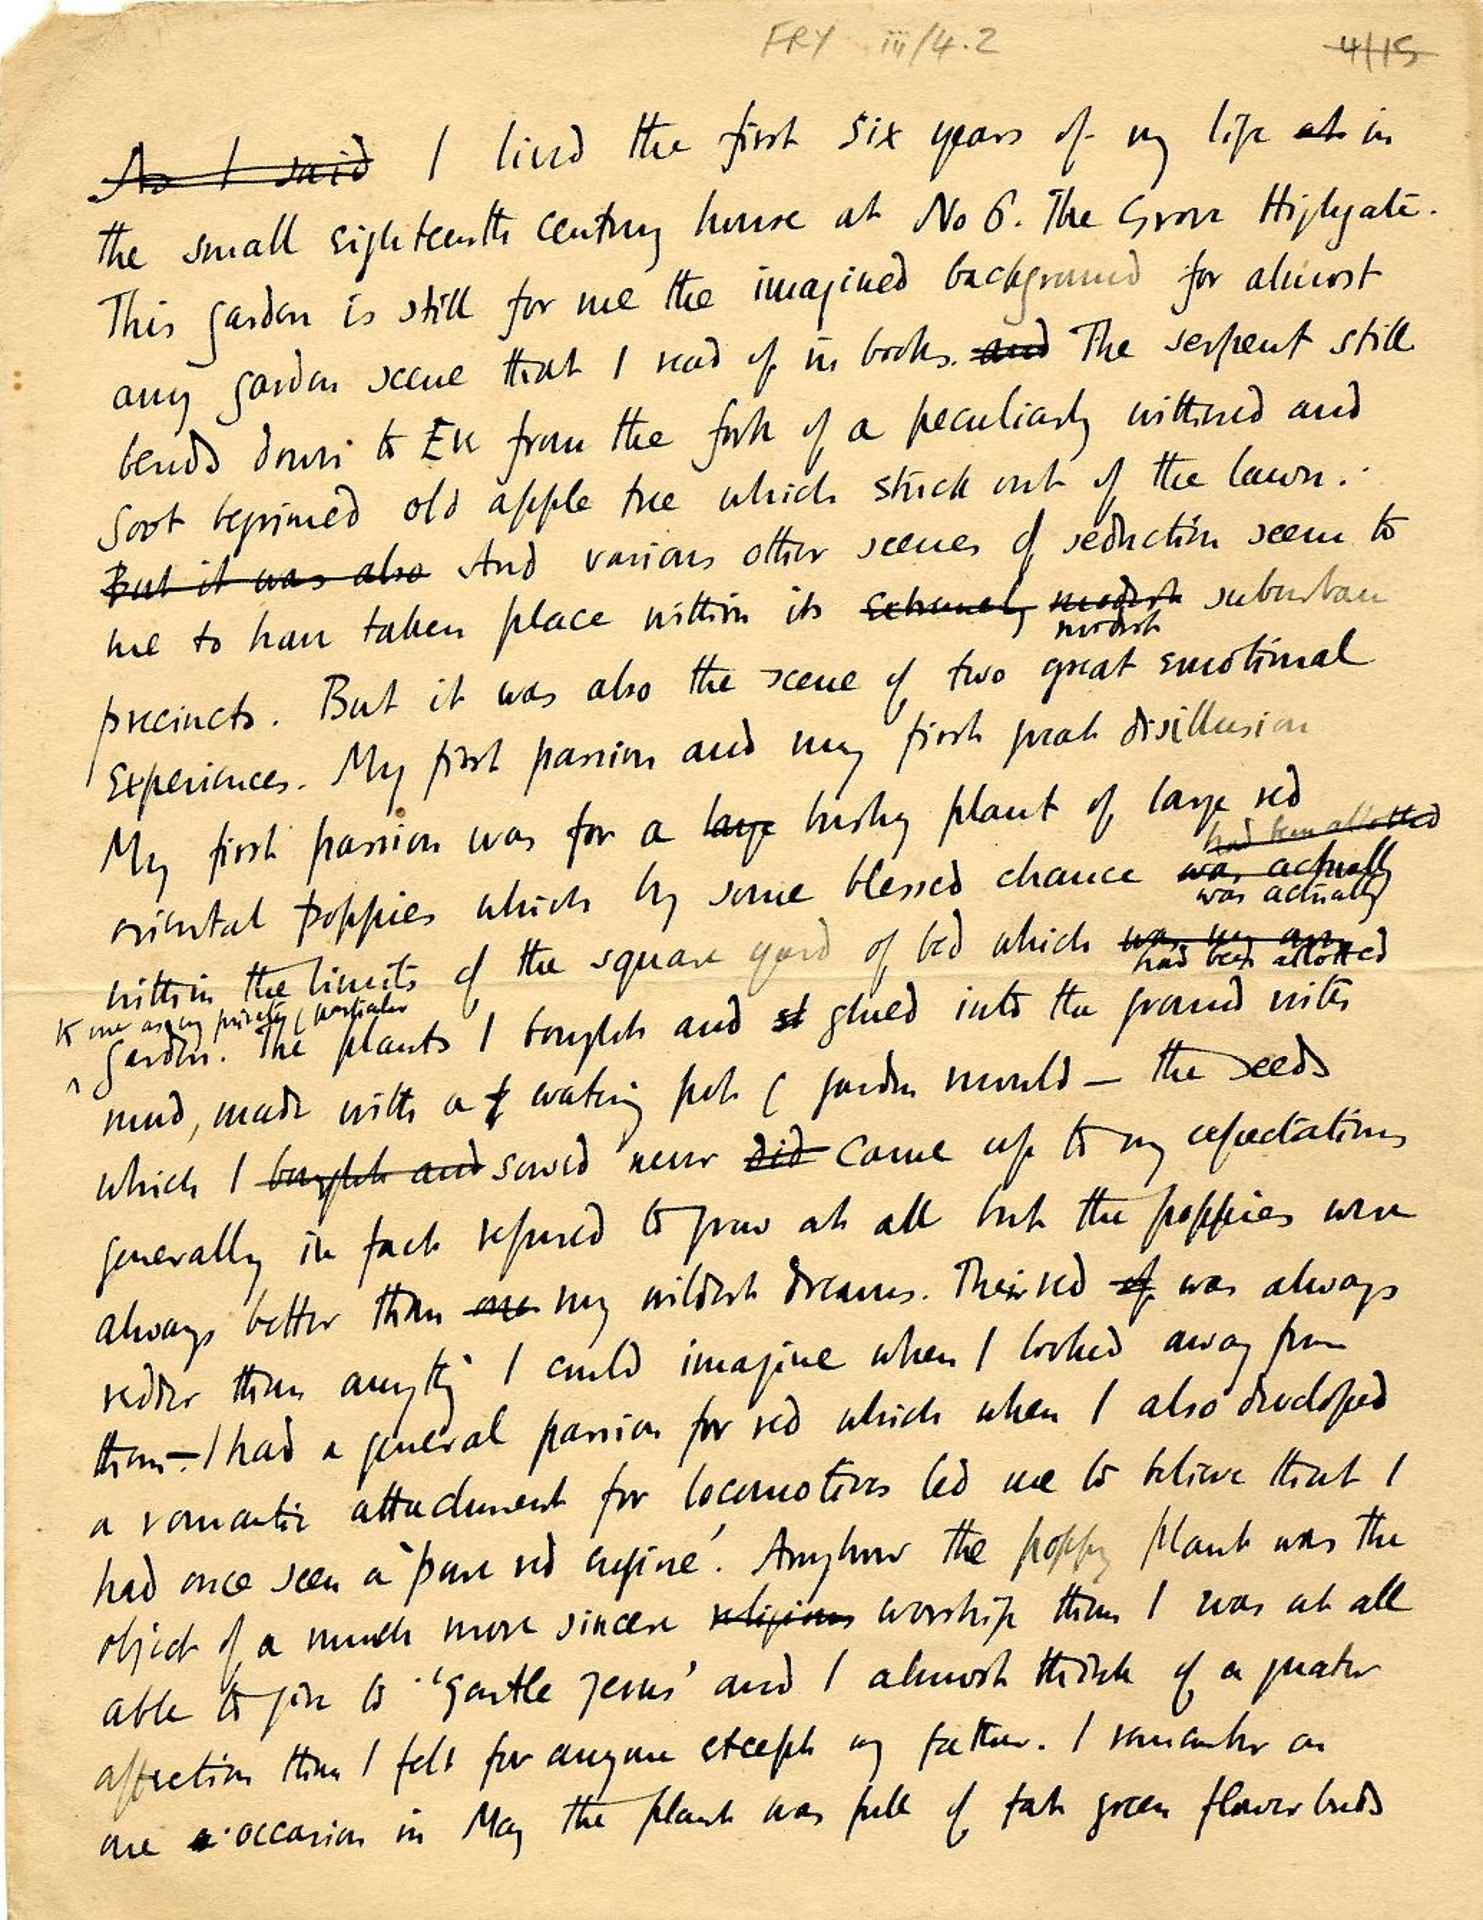 FRY iii/4.2
4/15
As I said I lived the first six years of my life at in
the small eighteenth century house at No 6. The Grove Highgate.
This garden is still for me the imagined background for almost
any garden scene that I read of in books. and The serpent still
bends down to Eve from the fork of a peculiarly withered and
soot begrimed old apple tree which stuck out of the lawn.
But it was also And various other scenes of seduction seem to
me to have taken place within its extremely modest suburban
modest
precincts. But it was also the scene of two great emotional
experiences. My first passion and my first great disillusion
My first passion was for a large bushy plant of large red
had been allotted
oriental poppies which by some blessed chance was actually
was actually
within the limits of the square yard of bed which was my own
had been allotted
to me as my private & particular
garden. The plants I bought and st glued into the ground with
mud, made with a watering pot & garden mould — the seeds
which I bought and sowed never did come up to my expectations
generally in fact refused to grow at all but the poppies were
always better than my wildest dreams. Their red of was always
redder than anythg I could imagine when I looked away from
them — I had a general passion for red which when I also developed
a romantic attachment for locomotives led me to believe that I
had once seen a 'pure red engine'. Anyhow the poppy plant was the
object of a much more sincere religious worship than I was at all
able to give to 'Gentle Jesus' and I almost think of a greater
affection than I felt for anyone except my father. I remember on
one occasion in May the plant was full of fat green flower buds